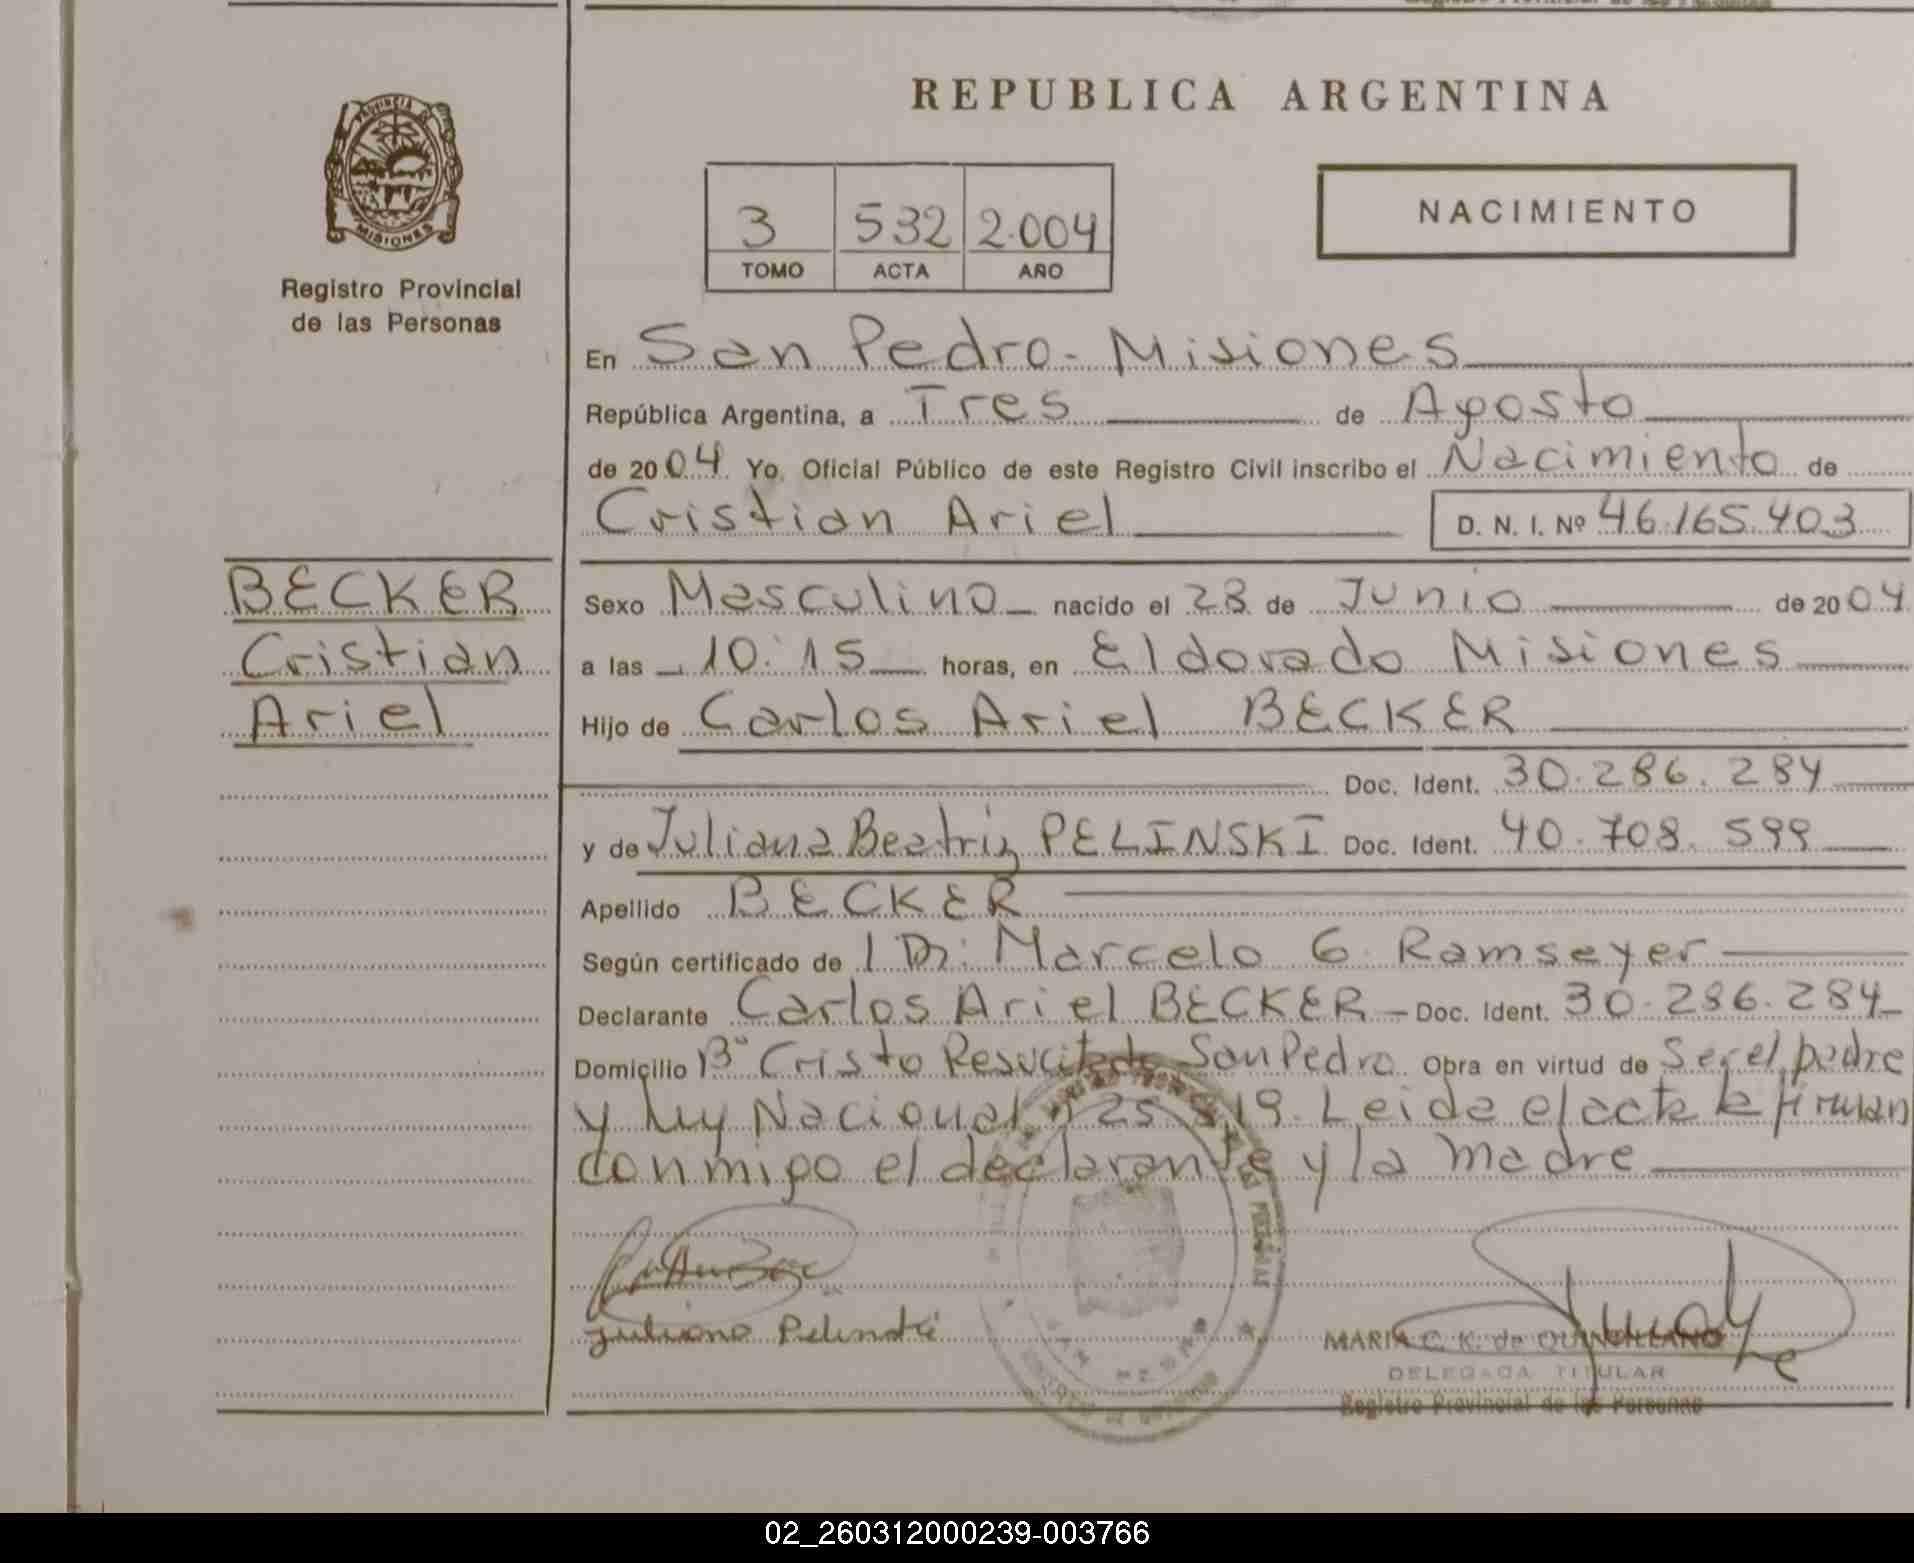 REPUBLICA ARGENTINA
PROVINCIA DE
MISIONES
Registro Provincial
de las Personas
3 532 2.004
TOMO ACTA AÑO
NACIMIENTO
En San Pedro - Misiones
República Argentina, a Tres de Agosto
de 2004 Yo, Oficial Público de este Registro Civil inscribo el Nacimiento de
Cristian Ariel D. N. I. Nº 46.165.403
BECKER
Cristian
Ariel
Sexo Masculino nacido el 28 de Junio de 2004
a las 10:15 horas, en Eldorado Misiones
Hijo de Carlos Ariel BECKER
Doc. Ident. 30.286.284
y de Juliana Beatriz PELINSKI Doc. Ident. 40.708.599
Apellido BECKER
Según certificado de Dr. Marcelo G. Ramseyer
Declarante Carlos Ariel BECKER Doc. Ident. 30.286.284
Domicilio Bº Cristo Resucitado San Pedro Obra en virtud de Ser el padre
y Ley Nacional Leida el acta la firman
conmigo el declarante y la madre
MARIA C. K. de QUINCILLANO
DELEGADA TITULAR
Registro Provincial de las Personas
02_260312000239-003766